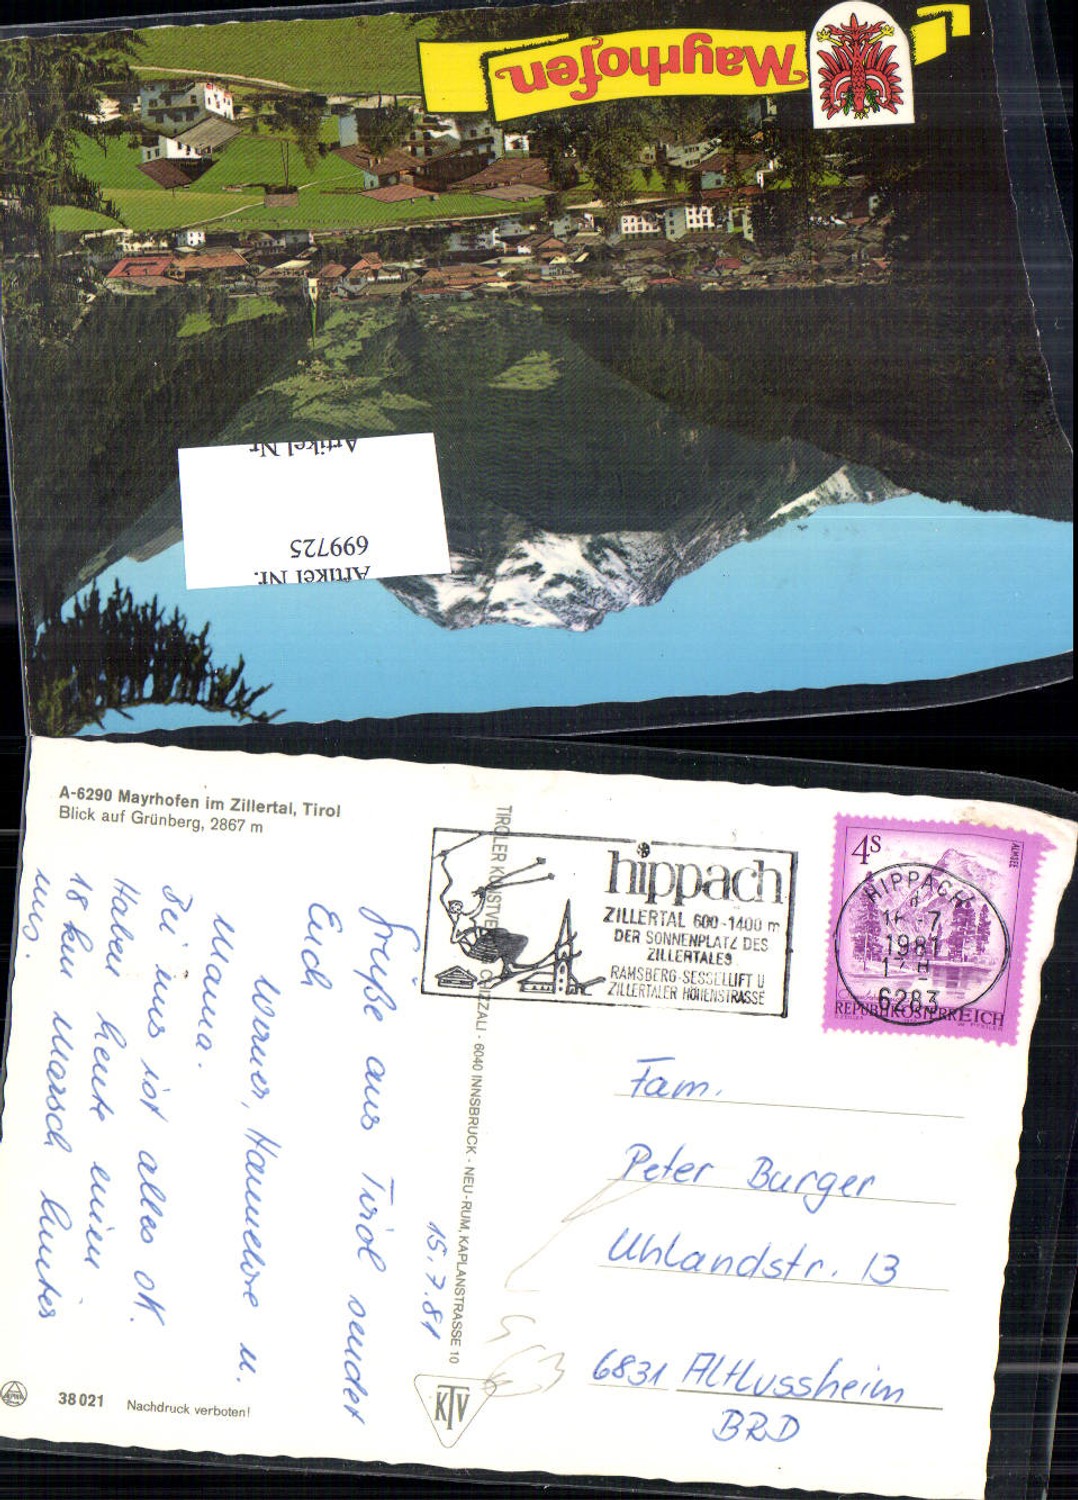 Mayrhofen
Artikel Nr.
699725
Artikel Nr.
A-6290 Mayrhofen im Zillertal, Tirol
Blick auf Grünberg, 2867 m
15.7.81
Grüße aus Tirol sendet
Euch
Werner, Hannelore u.
Mama.
Bei uns ist alles OK.
Haben heute einen
18 km Marsch hinter
uns.
38021 Nachdruck verboten!
TIROLER KUNSTVERLAG CHIZZALI · 6040 INNSBRUCK · NEU-RUM, KAPLANSTRASSE 10
KTV
hippach
ZILLERTAL 600-1400 m
DER SONNENPLATZ DES
ZILLERTALES
RAMSBERG-SESSELLIFT U
ZILLERTALER HÖHENSTRASSE
4S
ALMSEE
REPUBLIK ÖSTERREICH
HIPPACH
1981
6283
Fam.
Peter Burger
Uhlandstr. 13
6831 Altlussheim
BRD